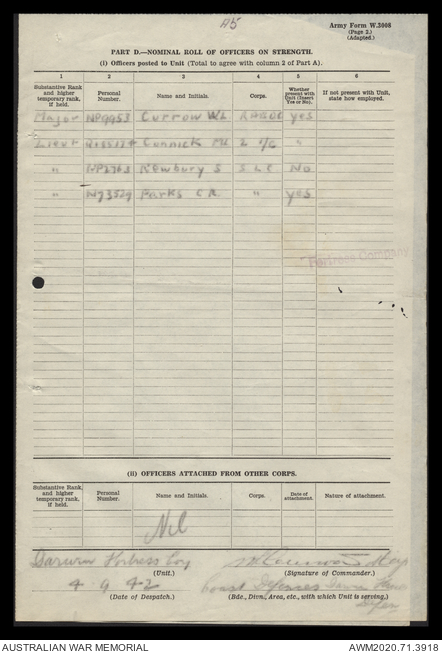 A5
Army Form W.3008
(Page 2.)
(Adapted.)
PART D.—NOMINAL ROLL OF OFFICERS ON STRENGTH.
(i) Officers posted to Unit (Total to agree with column 2 of Part A).
1 2 3 4 5 6
Substantive Rank and higher temporary rank, if held. Personal Number. Name and Initials. Corps. Whether present with Unit (Insert Yes or No). If not present with Unit, state how employed.
Major Currow WL yes
Lieut "
" Newbury S No
" Parks " yes
Fortress Company
(ii) OFFICERS ATTACHED FROM OTHER CORPS.
Substantive Rank, and higher temporary rank, if held. Personal Number. Name and Initials. Corps. Date of attachment. Nature of attachment.
Nil
Darwin Fortress Coy
(Unit.) (Signature of Commander.)
4.9.42 Coast Defences
(Date of Despatch.) (Bde., Divn., Area, etc., with which Unit is serving.)
AUSTRALIAN WAR MEMORIAL AWM2020.71.3918